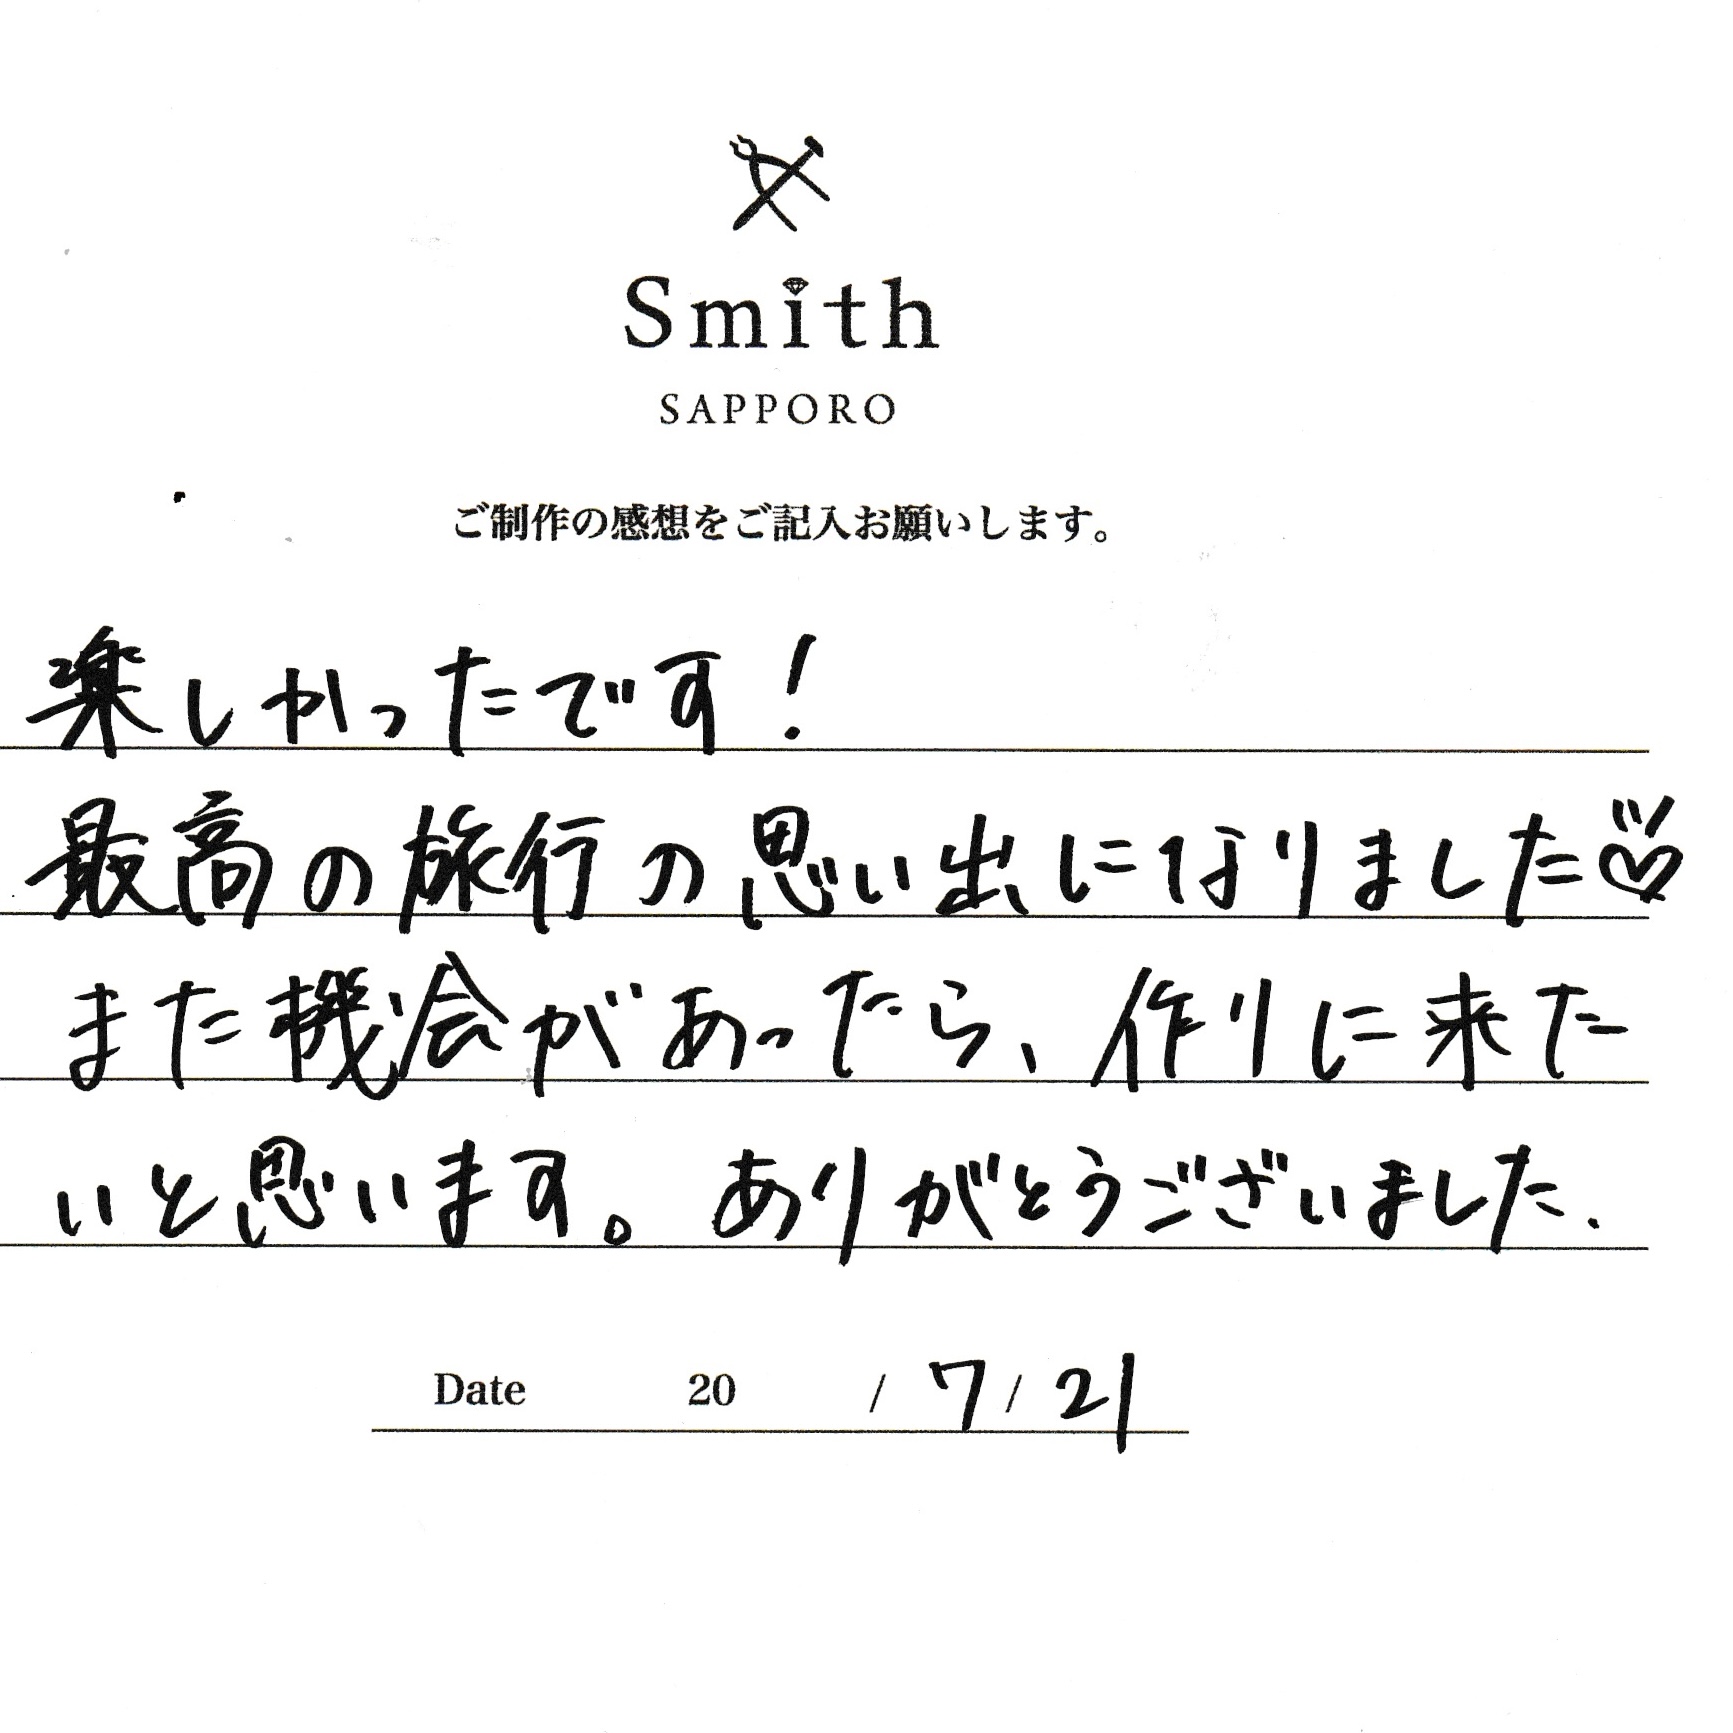 Smith
SAPPORO
ご制作の感想をご記入お願いします。
楽しかったです!
最高の旅行の思い出になりました♡
また機会があったら、作りに来た
いと思います。ありがとうございました.
Date 20 / 7 / 21